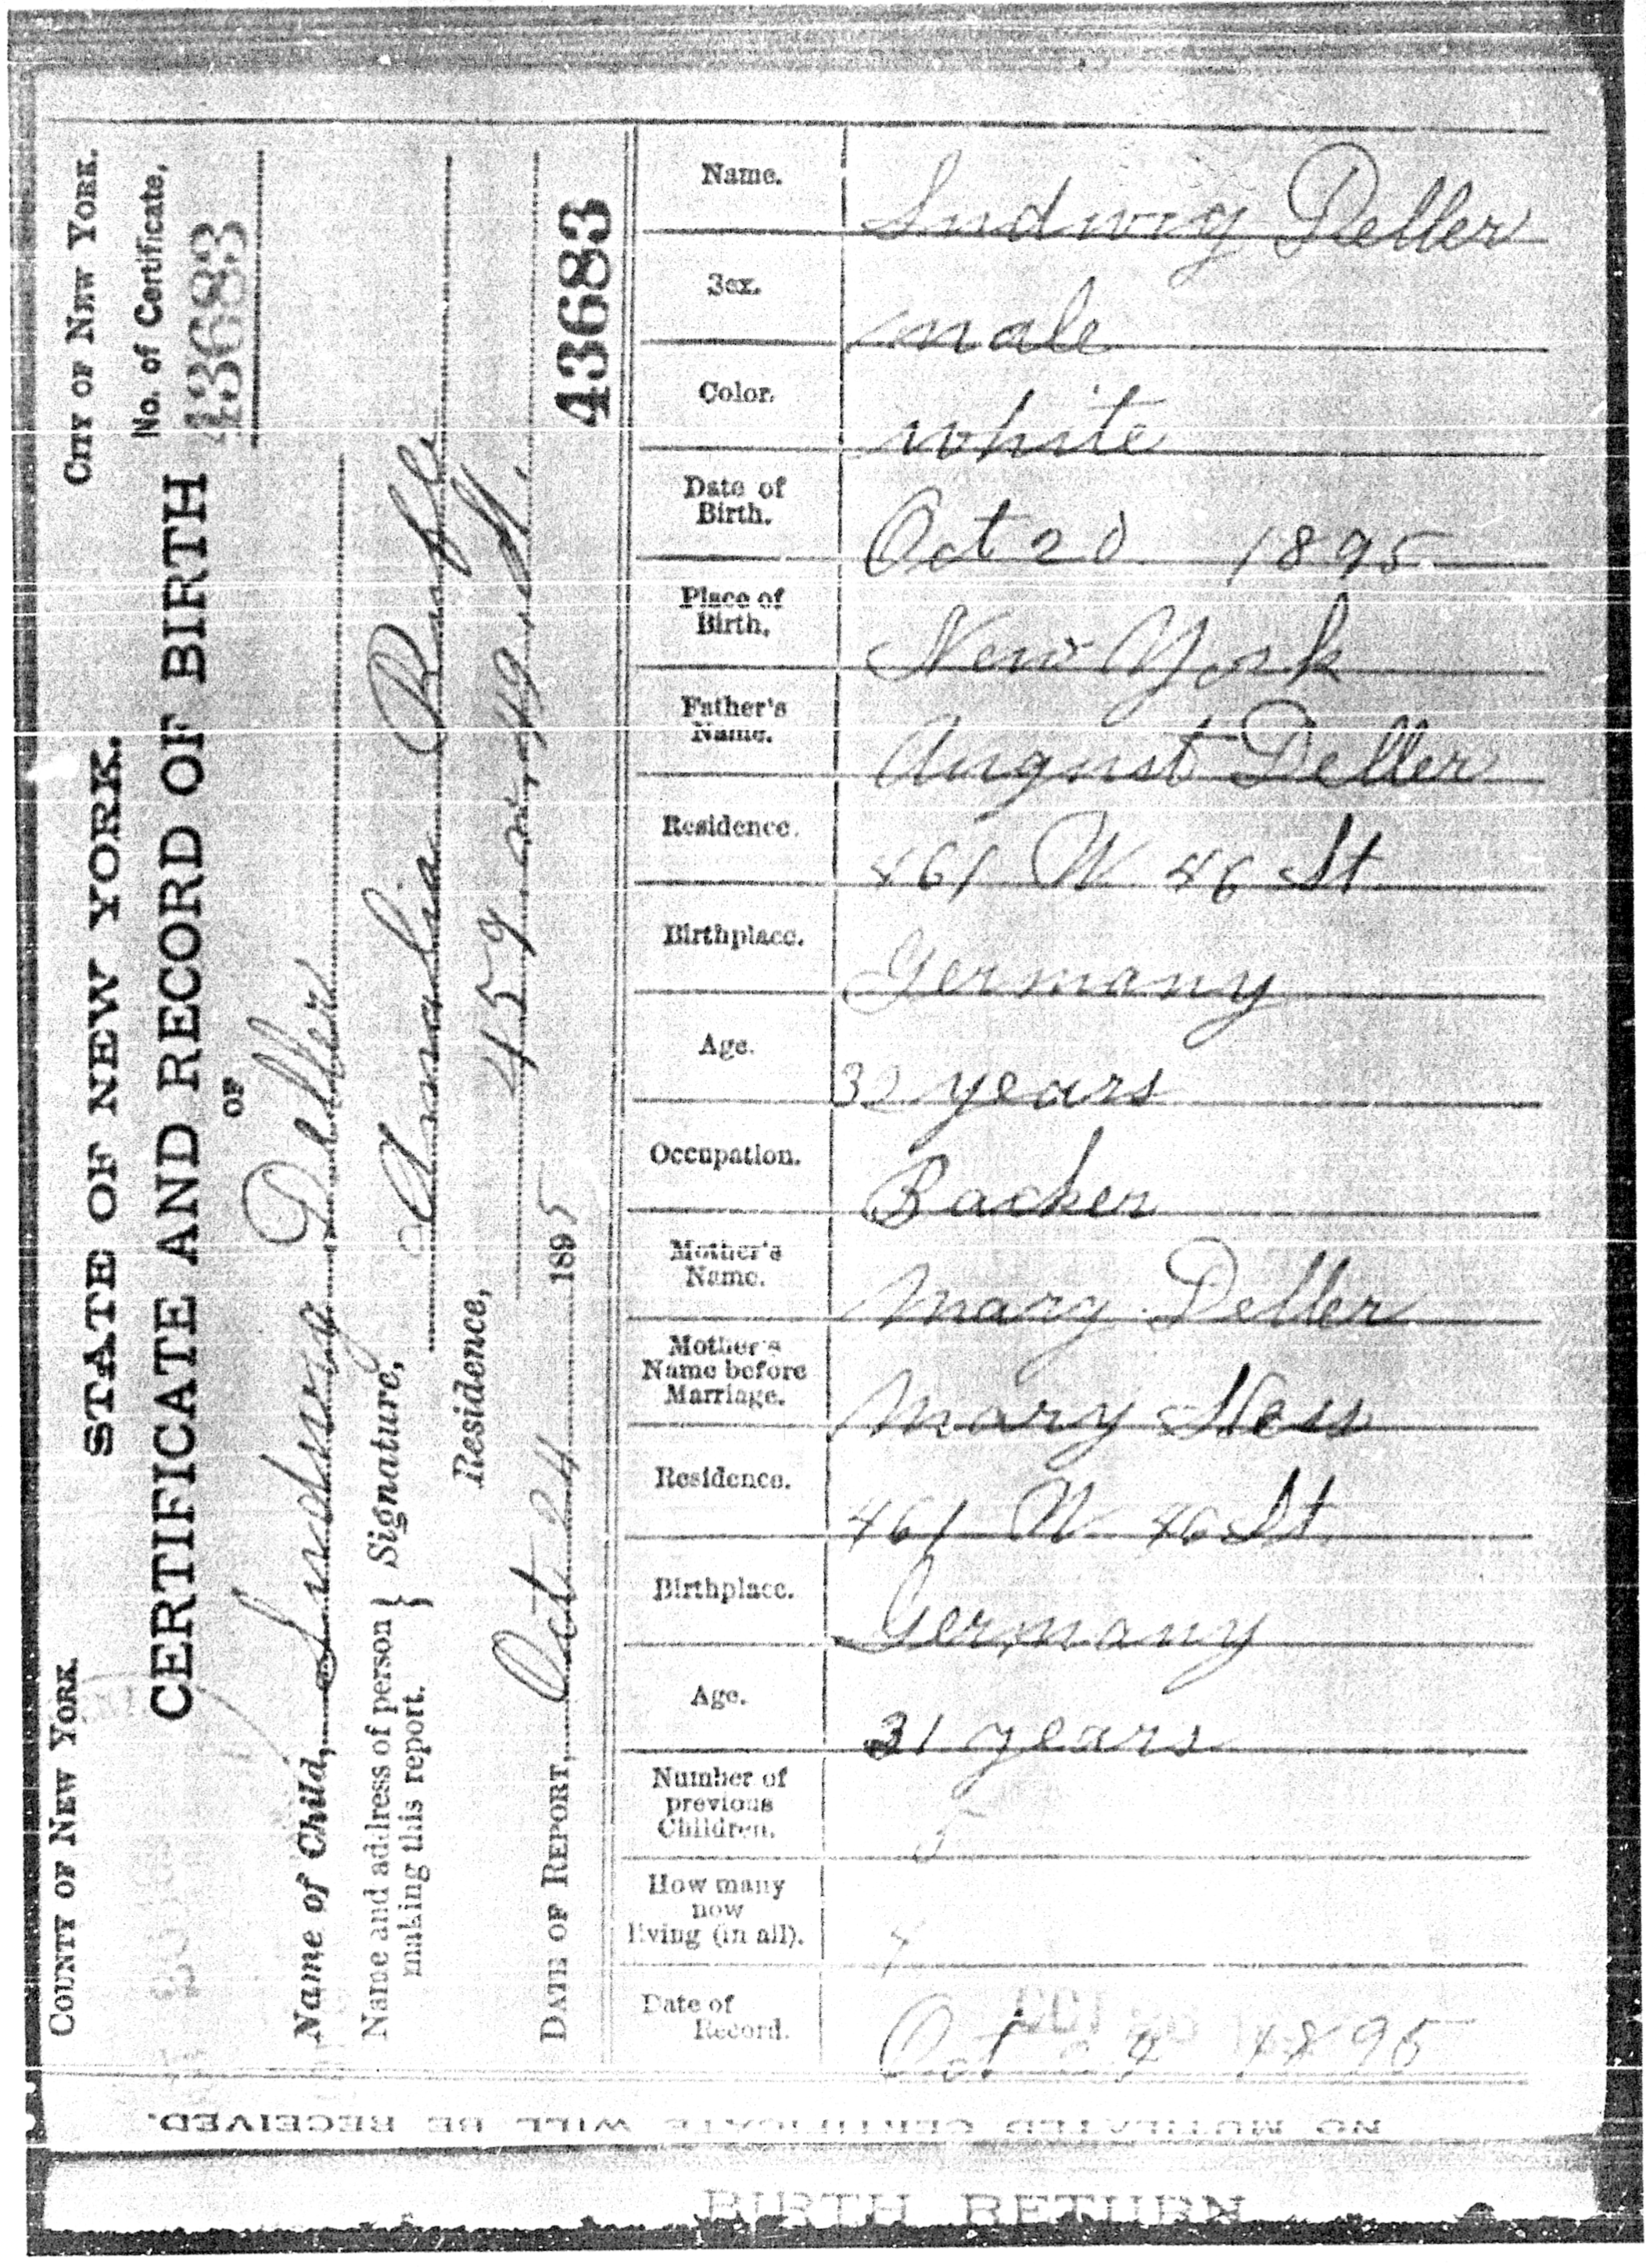 STATE OF NEW YORK.
COUNTY OF NEW YORK.
CITY OF NEW YORK.
CERTIFICATE AND RECORD OF BIRTH
No. of Certificate,
43683
OF
Name of Child, Ludwig Deller
Name and address of person making this report. } Signature, Amalia
Residence, 459 W. 49. St.
DATE OF REPORT, Oct 24 1895
43683
Name. Ludwig Deller
Sex. male
Color. white
Date of Birth. Oct 20 1895
Place of Birth. New York
Father's Name. August Deller
Residence. 461 W 46 St
Birthplace. Germany
Age. 32 years
Occupation. Backer
Mother's Name. Mary Deller
Mother's Name before Marriage. Mary Hess
Residence. 461 W 46 St
Birthplace. Germany
Age. 31 years
Number of previous Children. 5
How many now living (in all). 4
Date of Record. Oct 24 1895
NO MUTILATED CERTIFICATE WILL BE RECEIVED.
BIRTH RETURN